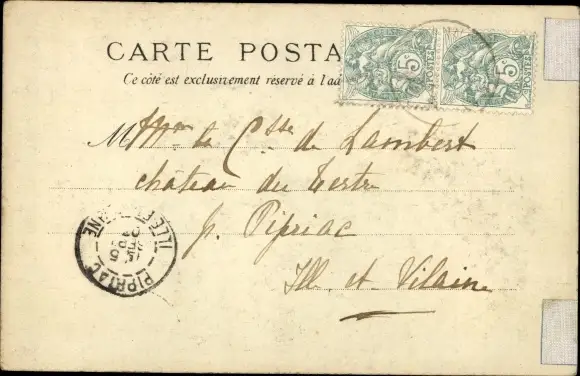 CARTE POSTA
Ce côté est exclusivement réservé à l'ad
5 POSTES
5 POSTES
Mme la Ctsse de Lambert
château du Tertre
p. Pipriac
Ille et Vilaine
PIPRIAC
ILLE ET VILAINE
15
SEPT